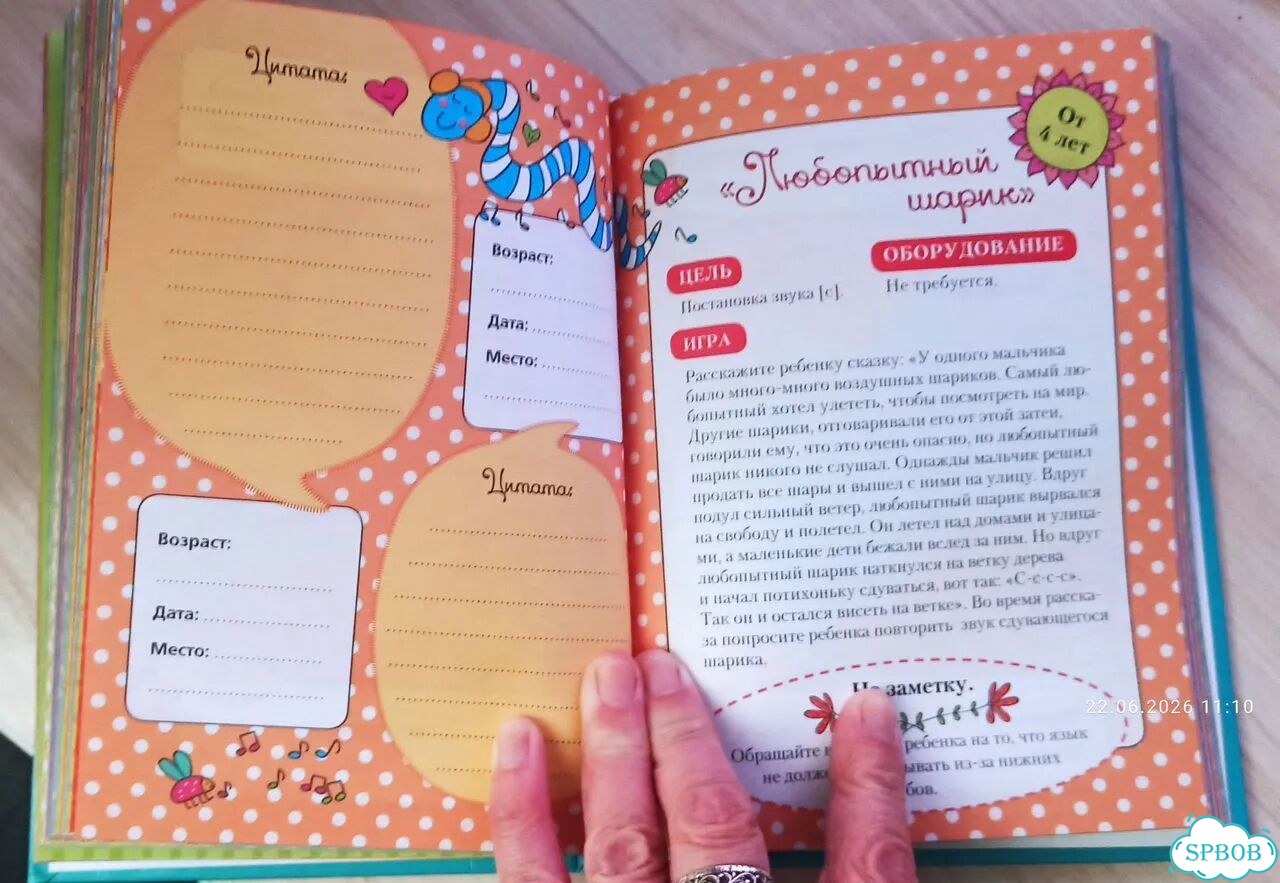 Цитата:
Возраст:
Дата:
Место:
Возраст:
Дата:
Место:
Цитата:
От
4 лет
«Любопытный
шарик»
ЦЕЛЬ
Постановка звука [с].
ОБОРУДОВАНИЕ
Не требуется.
ИГРА
Расскажите ребенку сказку: «У одного мальчика
было много-много воздушных шариков. Самый лю-
бопытный хотел улететь, чтобы посмотреть на мир.
Другие шарики, отговаривали его от этой затеи,
говорили ему, что это очень опасно, но любопытный
шарик никого не слушал. Однажды мальчик решил
продать все шары и вышел с ними на улицу. Вдруг
подул сильный ветер, любопытный шарик вырвался
на свободу и полетел. Он летел над домами и улица-
ми, а маленькие дети бежали вслед за ним. Но вдруг
любопытный шарик наткнулся на ветку дерева
и начал потихоньку сдуваться, вот так: «С-с-с-с».
Так он и остался висеть на ветке». Во время расска-
за попросите ребенка повторить звук сдувающегося
шарика.
На заметку.
Обращайте ребенка на то, что язык
не из-за нижних
22.06.2026 11:10
SPBOB